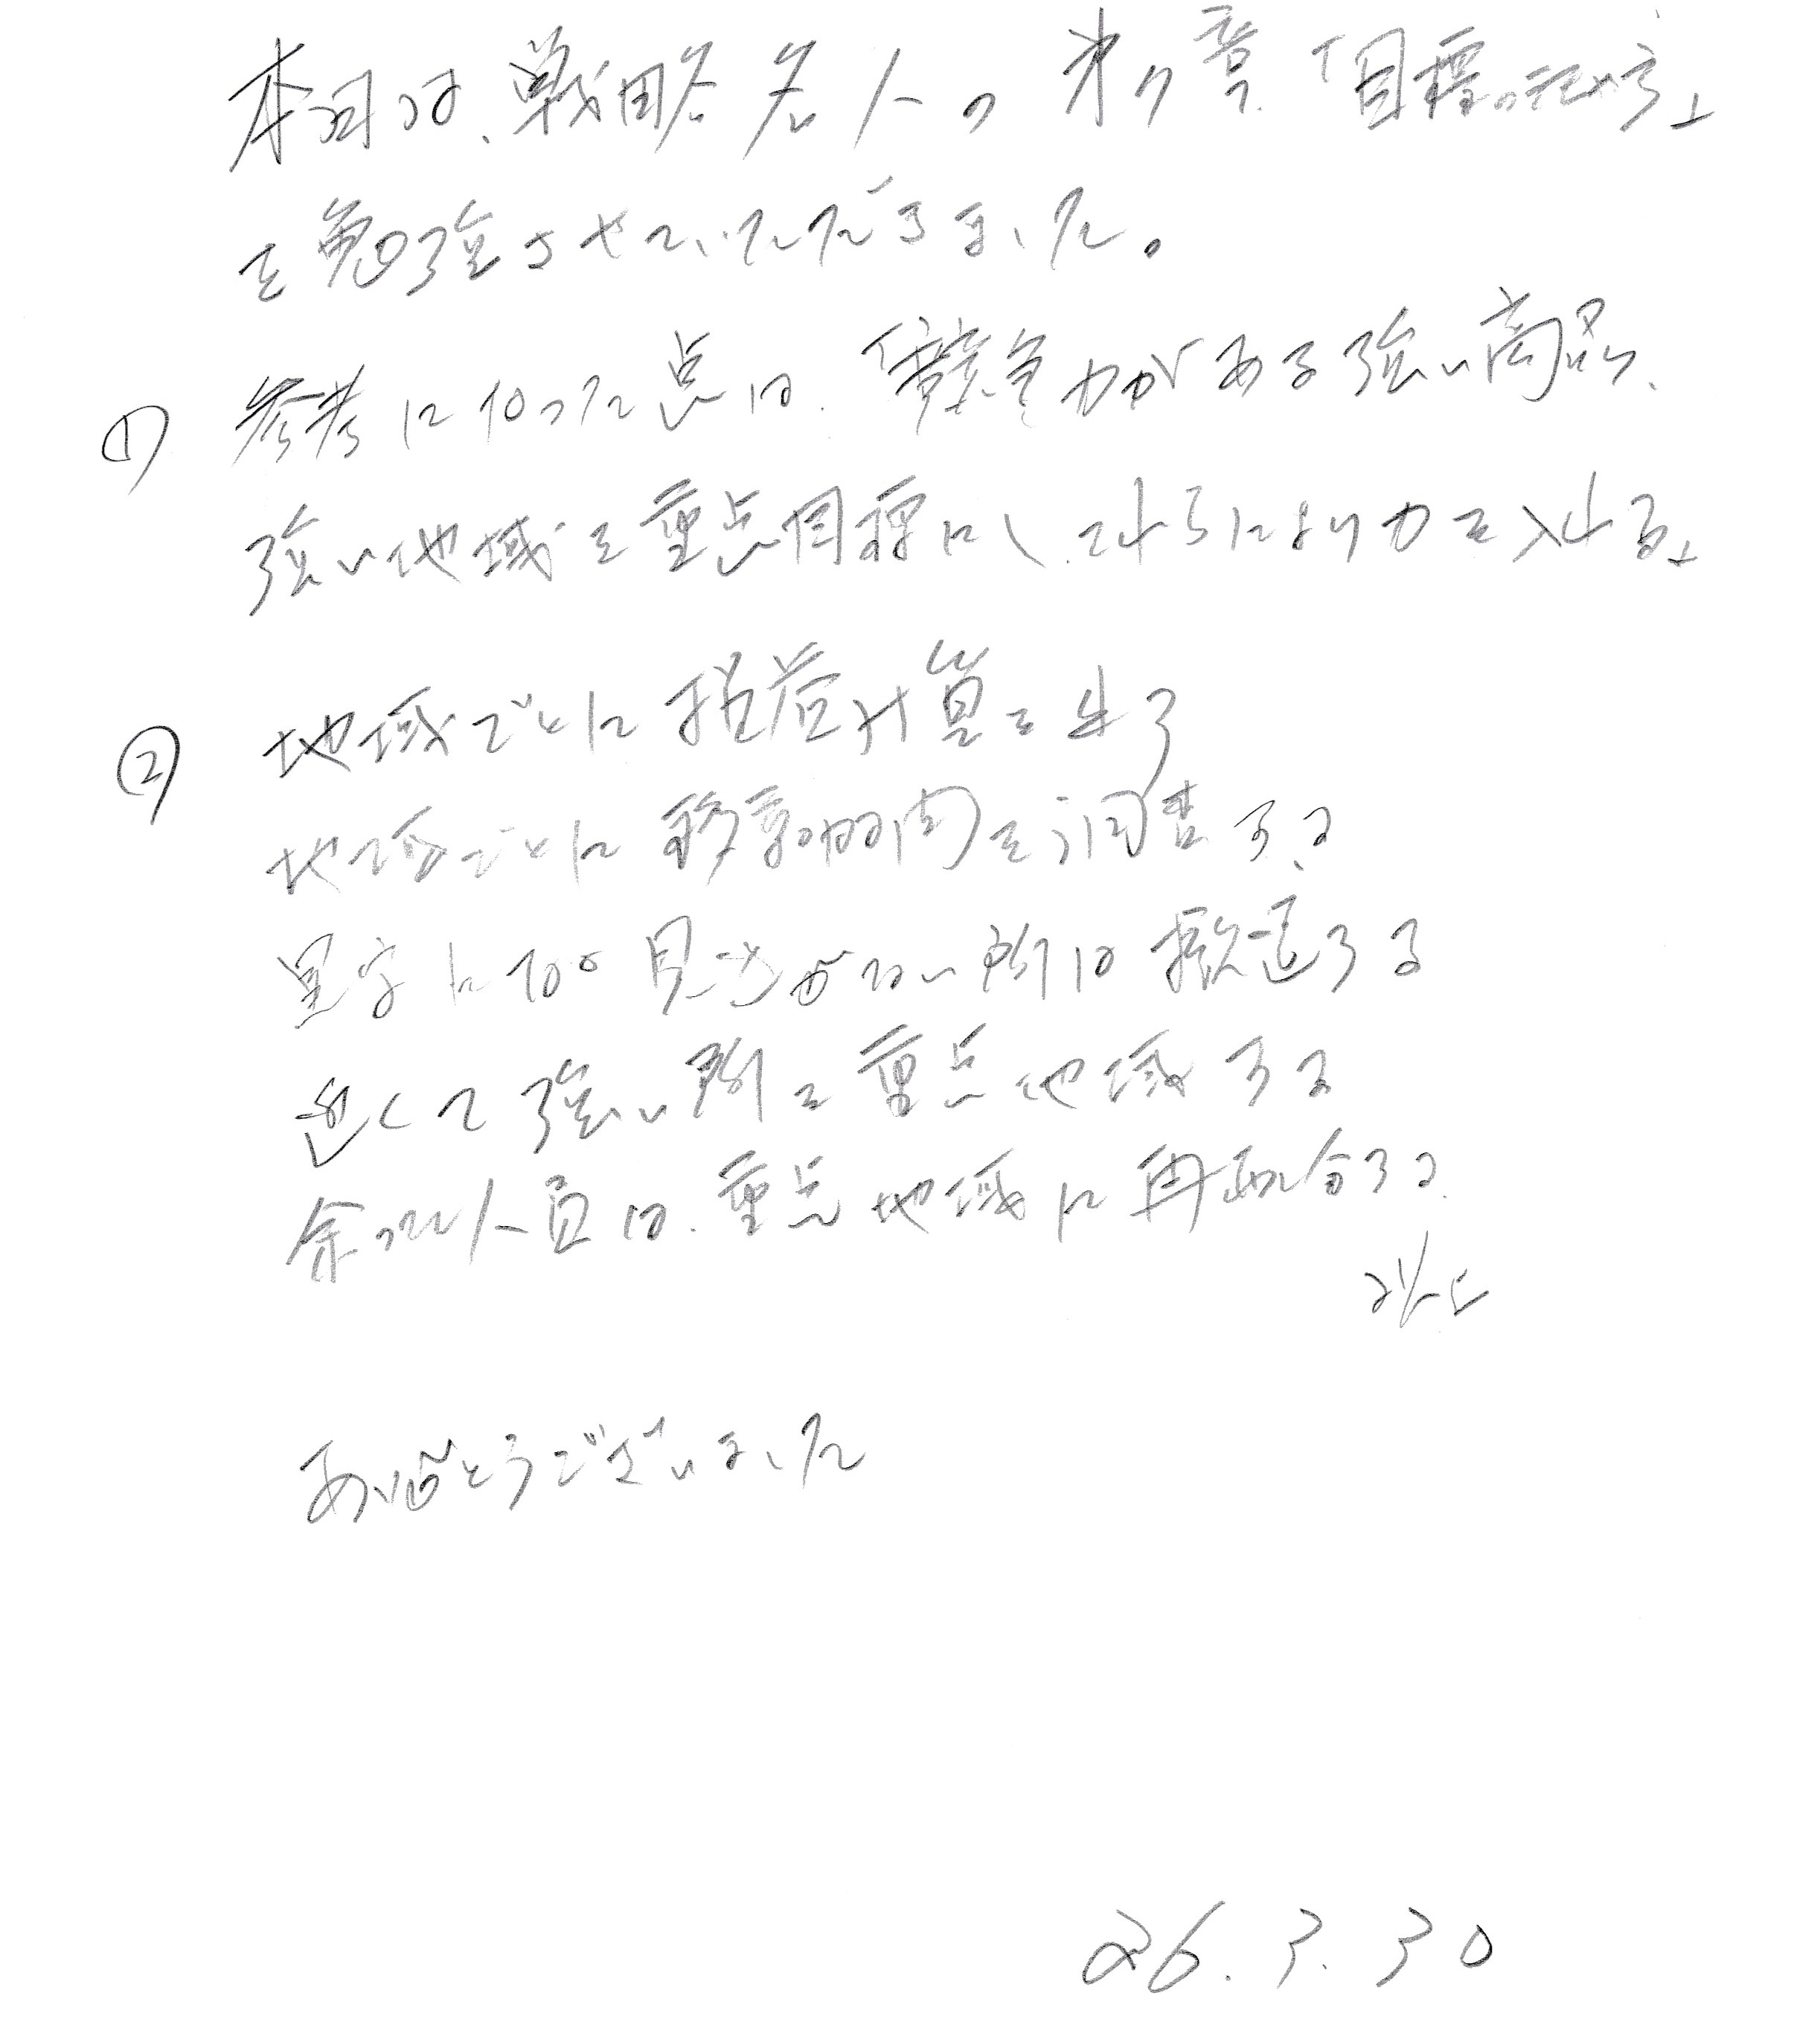 本日は、戦略名人の才ク章「目標の決め方」
を勉強させていただきました。
① 参考になった点は、「競争力がある強い商品、
強い地域を重点目標にし、それらにより力を入れる」
② 地域ごとに損益計算を出す
地域ごとに移動時間を調査する
黒字になる見込がない所は撤退する
近くて強い所を重点地域する
余った人員は、重点地域に再配分する
以上
ありがとうございました
26.3.30